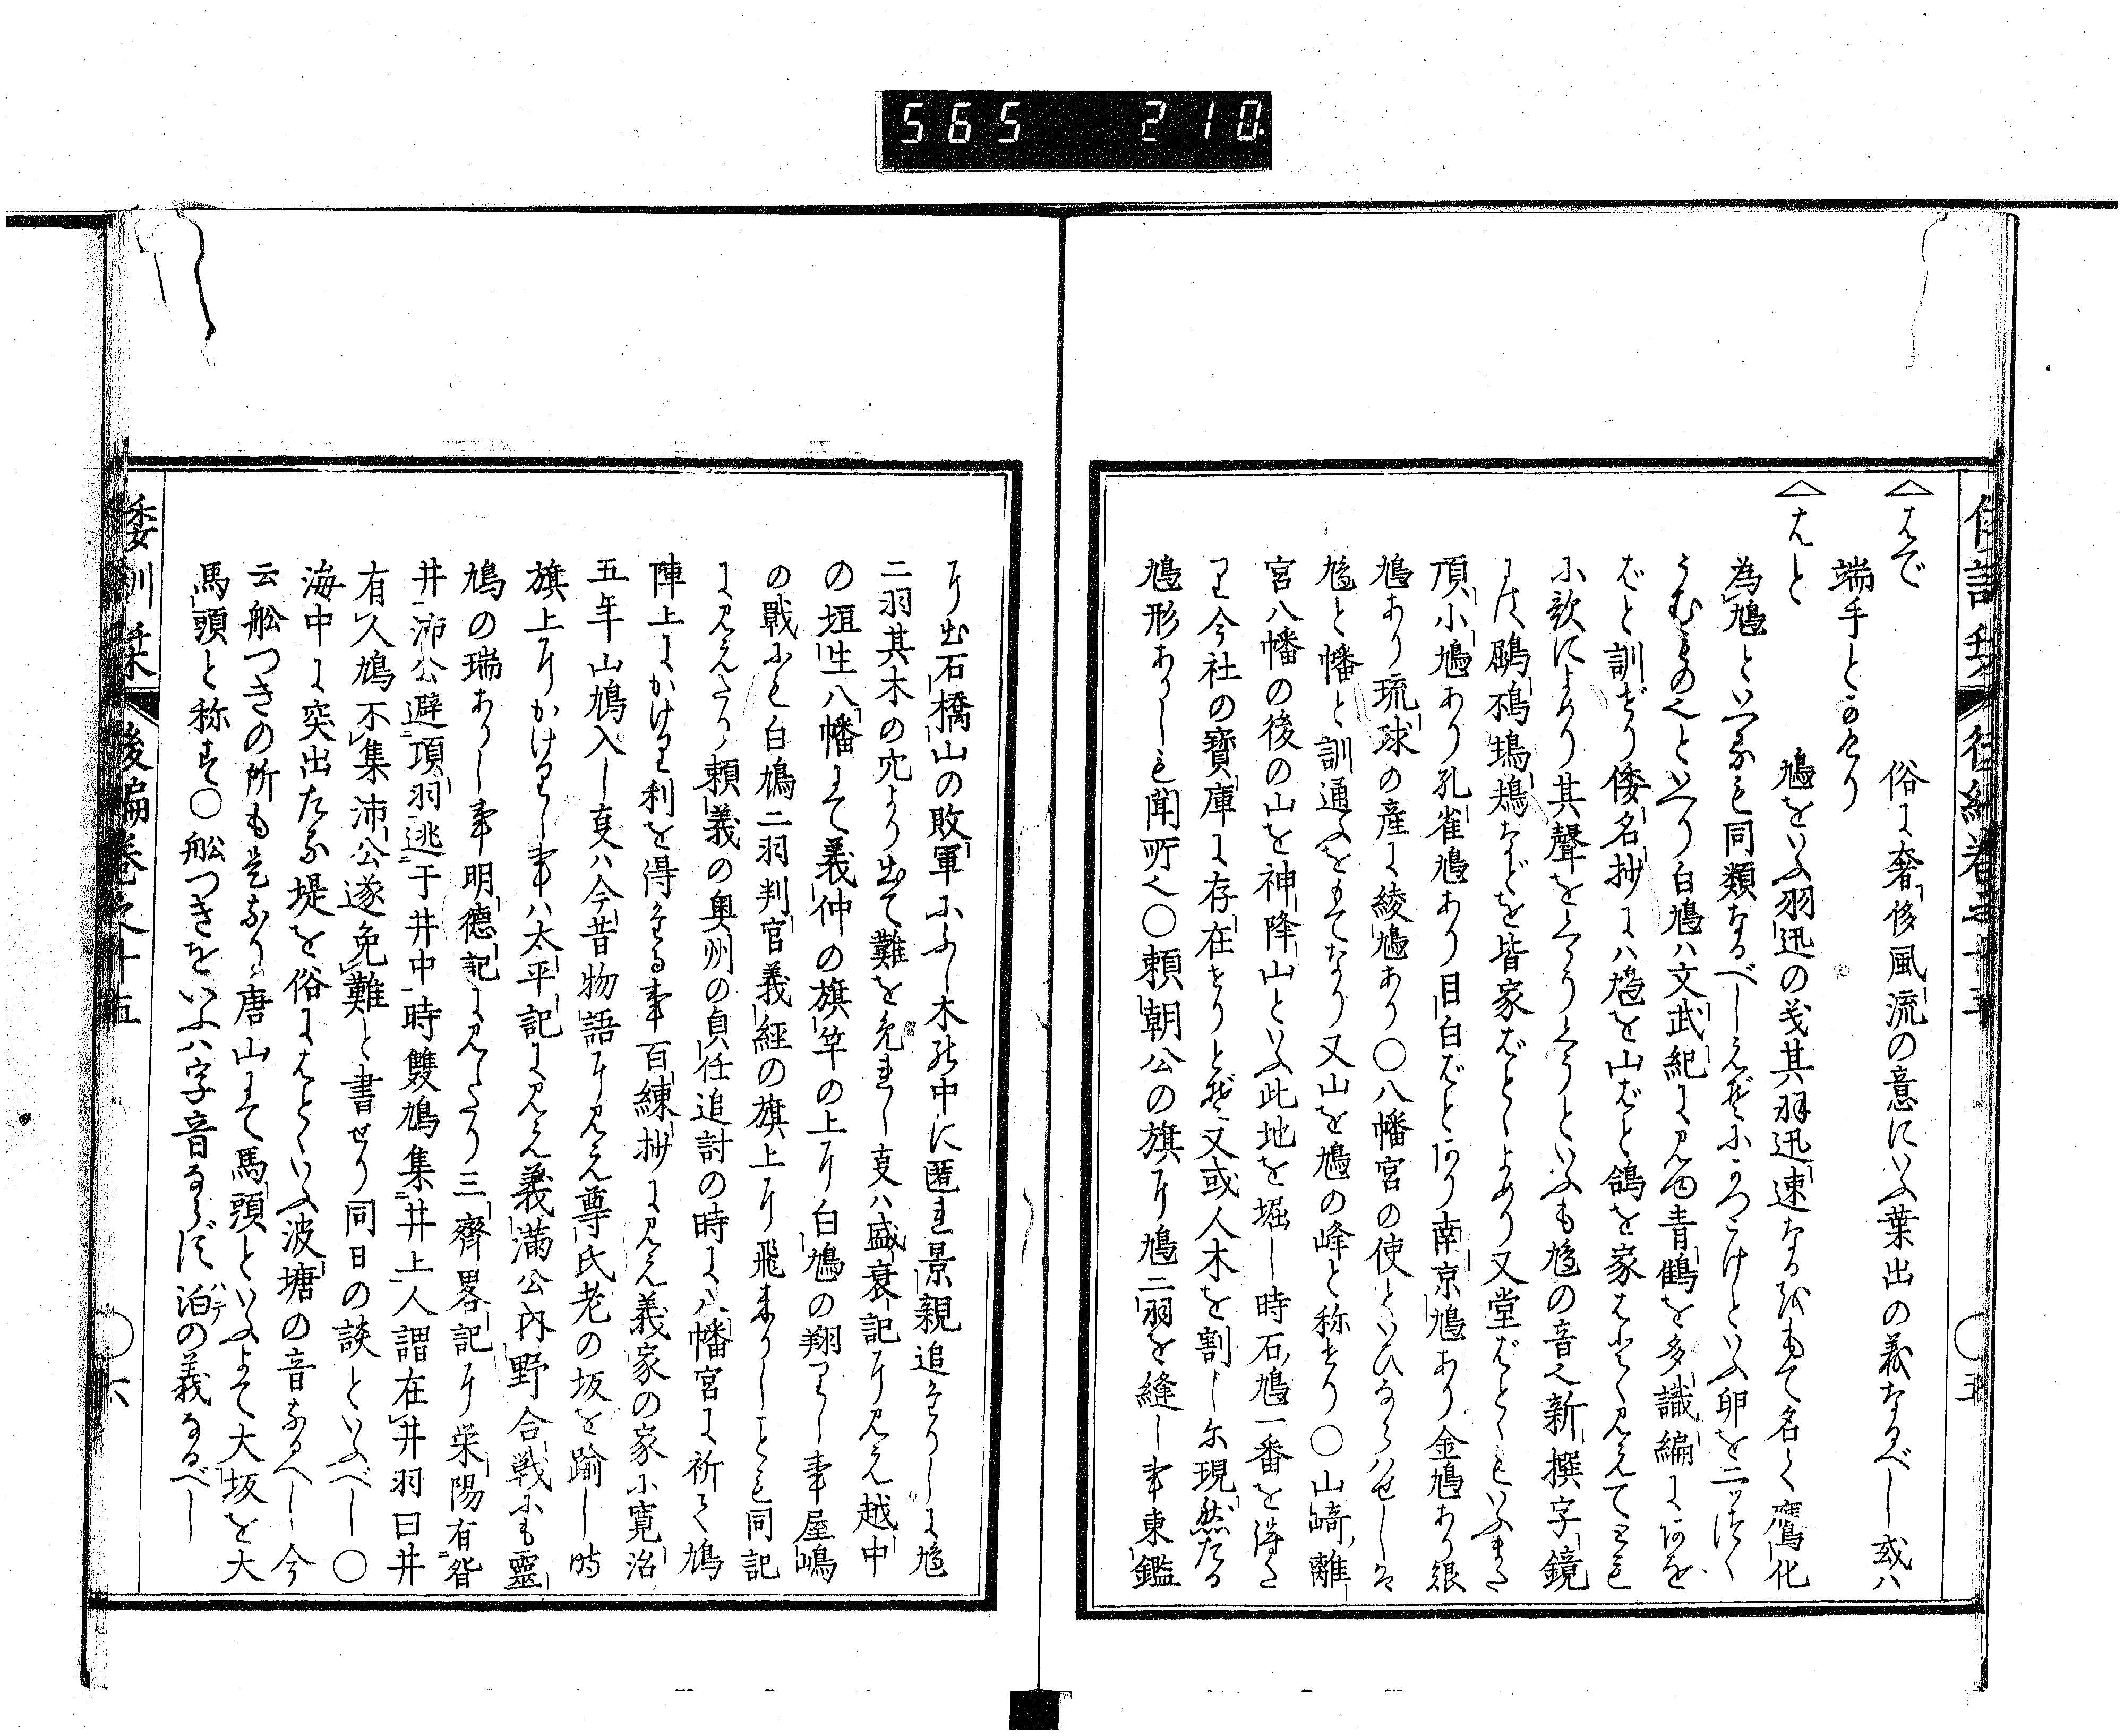 565 210
はで 俗に奢侈風流の意にいふ葉出の義なるべし或ハ
端手とかけり
はと 鳩をいふ羽迅の義其羽迅速なるをもて名く鷹化
為鳩といへるも同類なるべし
うむもの也といへり白鳩ハ文武紀に見ゆ青鶴を多識編に
ばと訓ぜり倭名抄にハ鳩を山ばと鴿を家ばと見えて
小歌によめり其聲を といふも鳩の音也新撰字鏡
に などを皆家ばとゝよめり又堂ばとゝもいふまた
頂小鳩あり孔雀鳩あり目白ばとあり南京鳩あり金鳩あり銀
鳩あり琉球の産に綾鳩あり〇八幡宮の使といひならハせしは
鳩と幡と訓通ふをもてなり又山を鳩の峰と称せり〇山崎離
宮八幡の後の山を神降山といふ此地を堀し時石鳩一番を得た
り今社の寶庫に存在せりとぞ又或人木を割しに現然たる
鳩形ありしも聞所也〇頼朝公の旗に鳩二羽を縫し事東鑑
に出石橋山の敗軍にふし木の中に匿れ景親追来りしに鳩
二羽其木の穴より出て難を免れし事ハ盛衰記に見え越中
の垣生八幡にて義仲の旗竿の上に白鳩の翔りし事屋嶋
の戰にも白鳩二羽判官義經の旗上に飛来りしことも同記
に見えたり頼義の奥州の貞任追討の時に八幡宮に祈て鳩
陣上にかけり利を得たる事百練抄に見え義家の家に寛治
五年山鳩入し事ハ今昔物語に見え尊氏老の坂を踰し時
旗上にかけりし事ハ太平記に見え義満公内野合戦にも靈
鳩の瑞ありし事明徳記に見えたり三齊畧記に栄陽有昝
井沛公避項羽逃于井中時雙鳩集井上人謂在井羽曰井
有人鳩不集沛公遂免難と書せり同日の談といふべし〇
海中に突出たる堤を俗にはとゝいふ波塘の音なるべし今
云舩つきの所も是なり唐山にて馬頭といふよて大坂を大
馬頭と称す〇舩つきをいふハ字音ならず泊ハテの義なるべし
倭訓栞 後編卷之十五 〇六